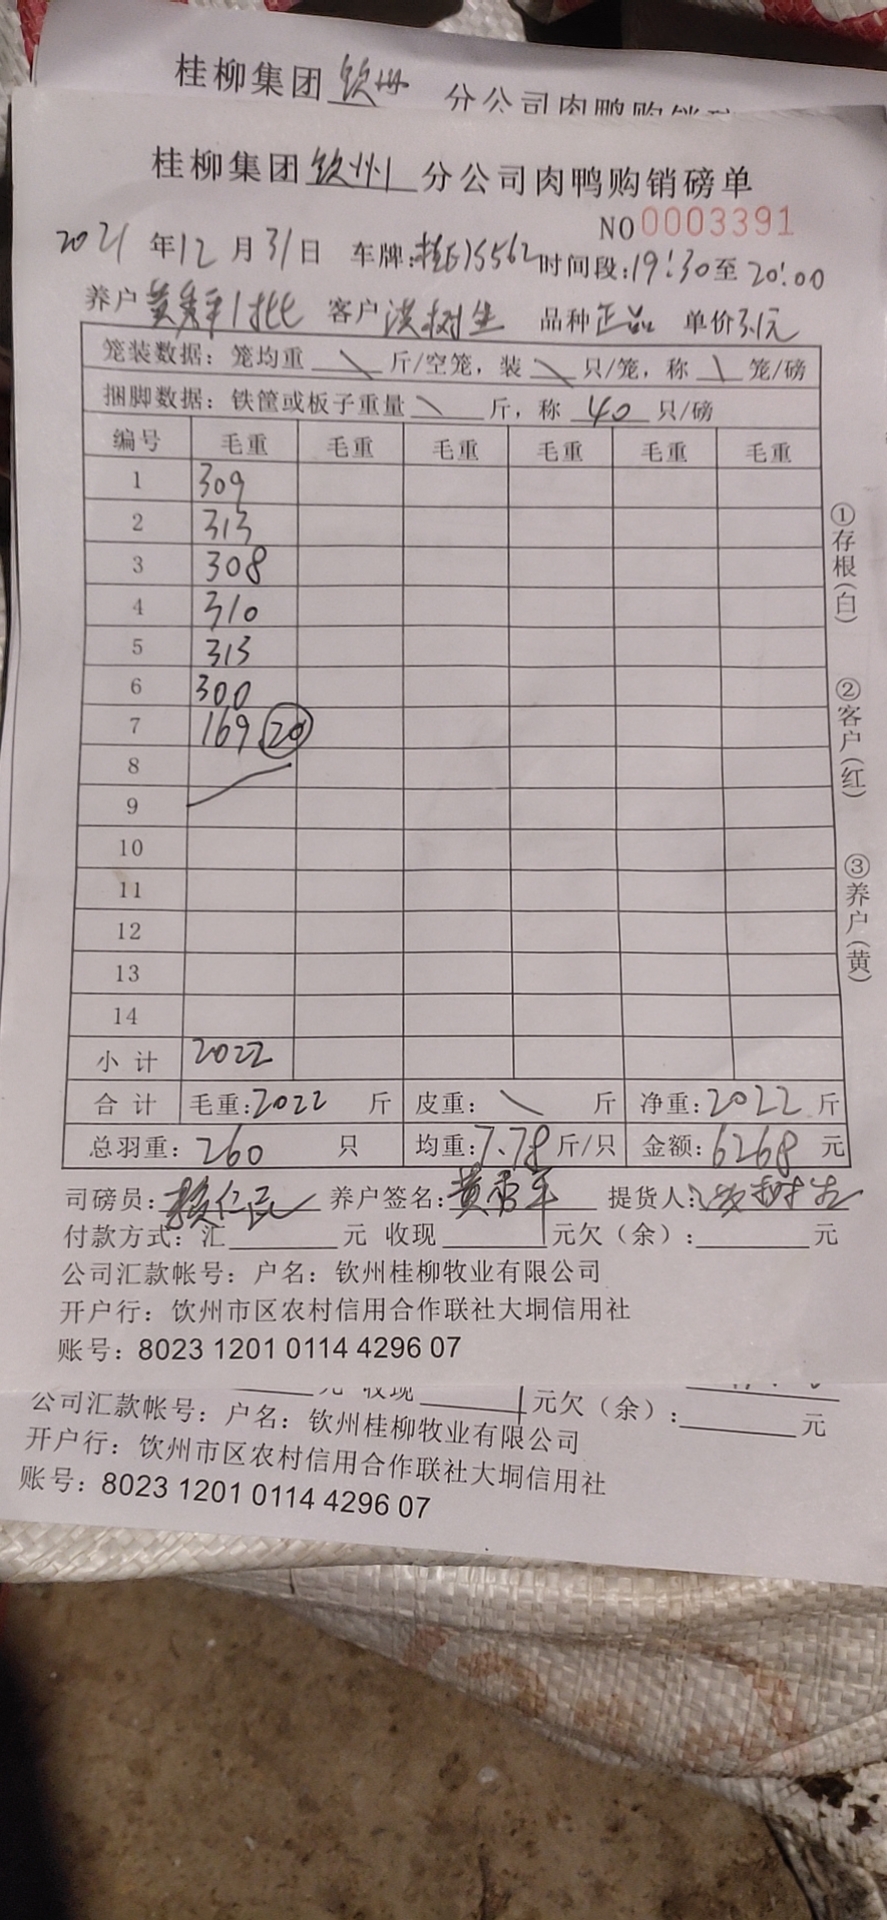 桂柳集团钦州 分公司肉鸭购销磅
桂柳集团钦州分公司肉鸭购销磅单
NO 0003391
2021年12月31日 车牌: 时间段:19:30至20:00
养户 黄秀军1批 客户 洪树生 品种 正品 单价3.1元
笼装数据：笼均重 \ 斤/空笼，装 \ 只/笼，称 \ 笼/磅
捆脚数据：铁筐或板子重量 \ 斤，称 40 只/磅
编号 毛重 毛重 毛重 毛重 毛重 毛重
1 309
2 313
3 308
4 310
5 313
6 300
7 169 20
8
9
10
11
12
13
14
小计 2022
合计 毛重:2022 斤 皮重: \ 斤 净重:2022斤
总羽重:260 只 均重:7.78斤/只 金额:6268元
司磅员: 养户签名:黄秀军 提货人:洪树生
付款方式：汇 元 收现 元欠（余）: 元
公司汇款帐号：户名：钦州桂柳牧业有限公司
开户行：钦州市区农村信用合作联社大垌信用社
账号：8023 1201 0114 4296 07
①存根(白) ②客户(红) ③养户(黄)
元 收现 元欠（余）: 元
公司汇款帐号：户名：钦州桂柳牧业有限公司
开户行：钦州市区农村信用合作联社大垌信用社
账号：8023 1201 0114 4296 07